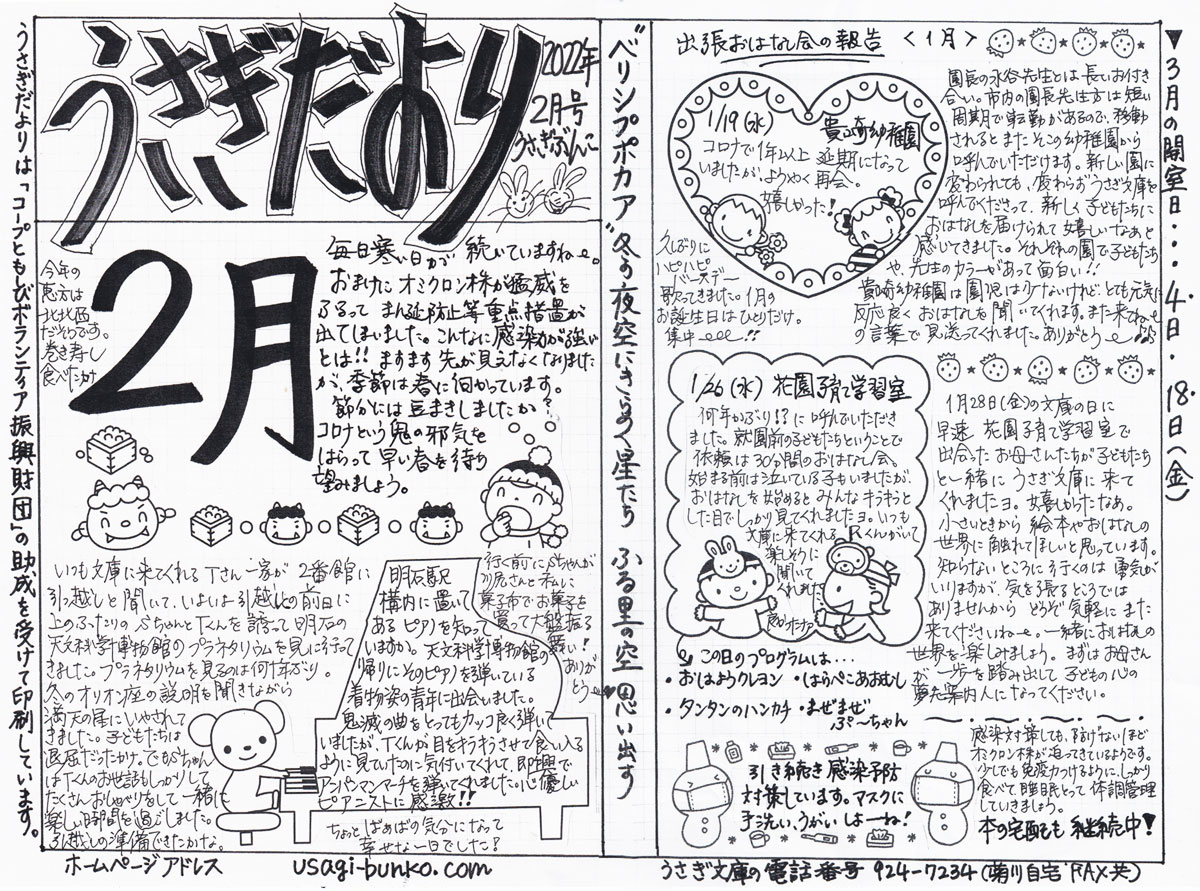 うさぎだより
2022年
2月号
うさぎぶんこ
うさぎだよりは「コープともしびボランティア振興財団」の助成を受けて印刷しています。
2月
今年の
恵方は
北北西
だそうです。
巻き寿し
食べたか
毎日寒い日が 続いていますね〜。
おまけに オミクロン株が猛威を
ふるって まん延防止等重点措置が
出てしまいました。こんなに感染力が強い
とは!! ますます 先が見えなくなりました
が、季節は春に向かっています。
節分には豆まきしましたか?
コロナという鬼の邪気を
はらって 早い春を待ち
望みましょう。
いつも文庫に来てくれるTさん一家が 2番館に
引っ越しと聞いて、いよいよ引越しの前日に
上のふたりのSちゃんとTくんを誘って明石の
天文科学博物館のプラネタリウムを見に行って
きました。プラネタリウムを見るのは何十年ぶり。
冬のオリオン座の説明を聞きながら
満天の星にいやされて
きました。子どもたちは
退屈だったかけ。でもSちゃん
はTくんのお世話もしっかりして
たくさんおしゃべりをして一緒に
楽しい時間を過ごしました。
引越しの準備できたかな。
明石駅
構内に置いて
ある ピアノを知って
いますか。天文科学博物館の
帰りにそのピアノを弾いている
着物姿の青年に出会いました。
鬼滅の曲をとってもカッコ良く弾いて
いましたが、Tくんが目をキラキラさせて食い入る
ように見ていたのに気付いてくれて、即興で
アンパンマンマーチを弾いてくれました。心優しい
ピアニストに感激!!
行く前にSちゃんが
お菓子を
買って大盤振る
舞い!
ありが
とう〜
ちょっと ばぁばの気分になって
幸せな一日でした!
ホームページアドレス usagi-bunko.com
"ベリシプポカア"冬の夜空にきらめく星たち ふる里の空 思い出す
出張おはなし会の報告 <1月>
1/19(水) 貴崎幼稚園
コロナで1年以上 延期になって
いましたが、ようやく再会。
嬉しかった!
久しぶりに
ハピハピ
バースデー
歌ってきました。1月の
お誕生日はひとりだけ。
集中〜!!
園長の水谷先生とは長いお付き
合い。市内の園長先生方は短い
周期で転勤があるので、移動
されるとまたそこの幼稚園から
呼んでいただけます。新しい園に
変わられても、変わらずうさぎ文庫を
呼んでくださって、新しく子どもたちに
おはなしを届けられて嬉しいなあと
感じてきました。それぞれの園で子どもたち
や、先生のカラーがあって面白い!!
貴崎幼稚園は園児は少ないけれど、とても元気に
反応良く おはなしを聞いてくれます。また来てね〜
の言葉で見送ってくれました。ありがとう〜
1/26(水) 花園子育て学習室
何年かぶり!? に呼んでいただき
ました。就園前の子どもたちということで
依頼は30分間のおはなし会。
始まる前は泣いている子もいましたが、
おはなしを始めるとみんなキラキラと
した目でしっかり見てくれましたヨ。いつも
文庫に来てくれるRくんがいて
楽しそうに
聞いて
くれました
この日のプログラムは…
・おはようクレヨン ・はらぺこあおむし
・タンタンのハンカチ ・まぜまぜ
ぷ〜ちゃん
1月28日(金)の文庫の日に
早速 花園子育て学習室で
出会ったお母さんたちが子どもたち
と一緒に うさぎ文庫に来て
くれましたヨ。嬉しかったなあ。
小さいときから 絵本やおはなしの
世界に触れてほしいと思っています。
知らないところに行くのは 勇気が
いりますが、気を張るところでは
ありませんから どうぞ気軽に また
来てくださいね〜。一緒におはなしの
世界を楽しみましょう。まずはお母さん
が一歩を踏み出して 子どもの心の
夢先案内人になってください。
引き続き感染予防
対策しています。マスクに
手洗い、うがいしよーね!
感染対策しても、防げないほど
オミクロン株が迫ってきているようです。
少しでも免疫力つけるように、しっかり
食べて、睡眠とって 体調管理
していきましょう。
本の宅配も 継続中!
▼3月の開室日…4日・18日(金)
うさぎ文庫の電話番号 924-7234(菊川自宅・FAX共)